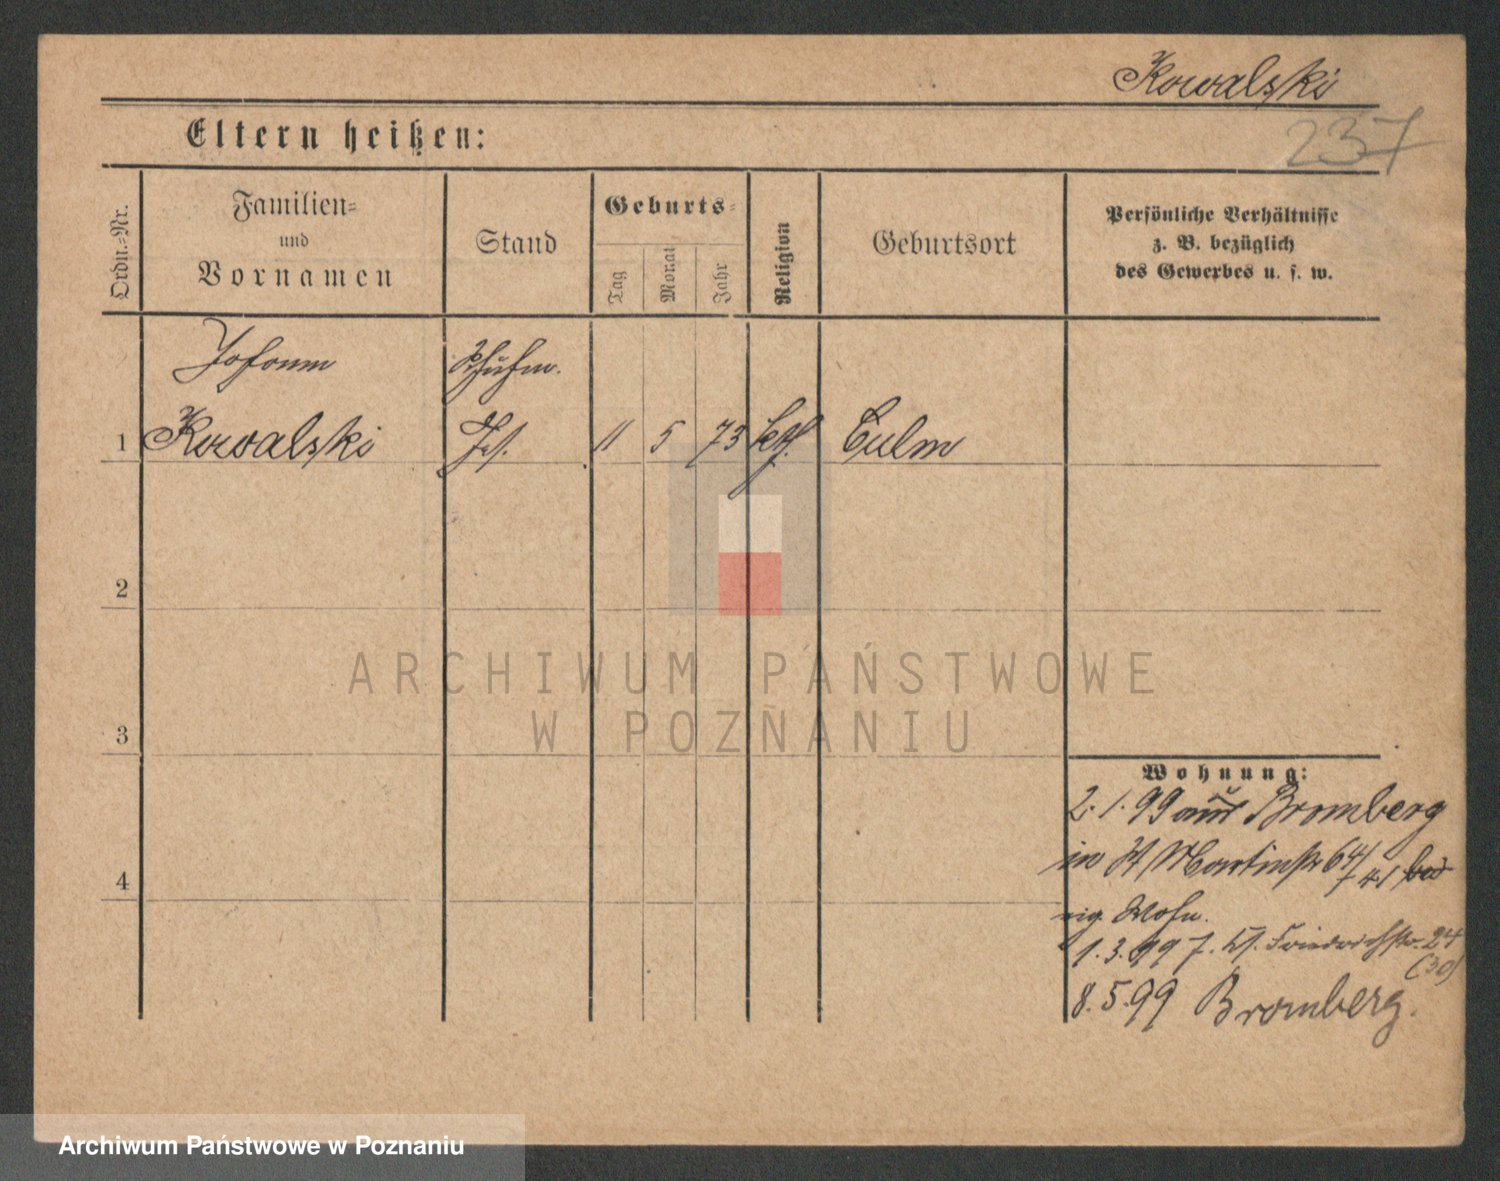 Kowalski
237
Eltern heißen:
Ordn.-Nr.
Familien-
und
Vornamen
Stand
Geburts-
Tag
Monat
Jahr
Religion
Geburtsort
Persönliche Verhältnisse
z. B. bezüglich
des Gewerbes u. s. w.
Johann
Schuhm.
1 Kowalski Ges. 11 5 73 kth. Culm
2
3
4
Wohnung:
2.1.99 aus Bromberg
in St Martinstr 64/
eig. Wohn.
1.3.99 Friedrichstr. 24
(30)
8.5.99 Bromberg.
ARCHIWUM PAŃSTWOWE
W POZNANIU
Archiwum Państwowe w Poznaniu